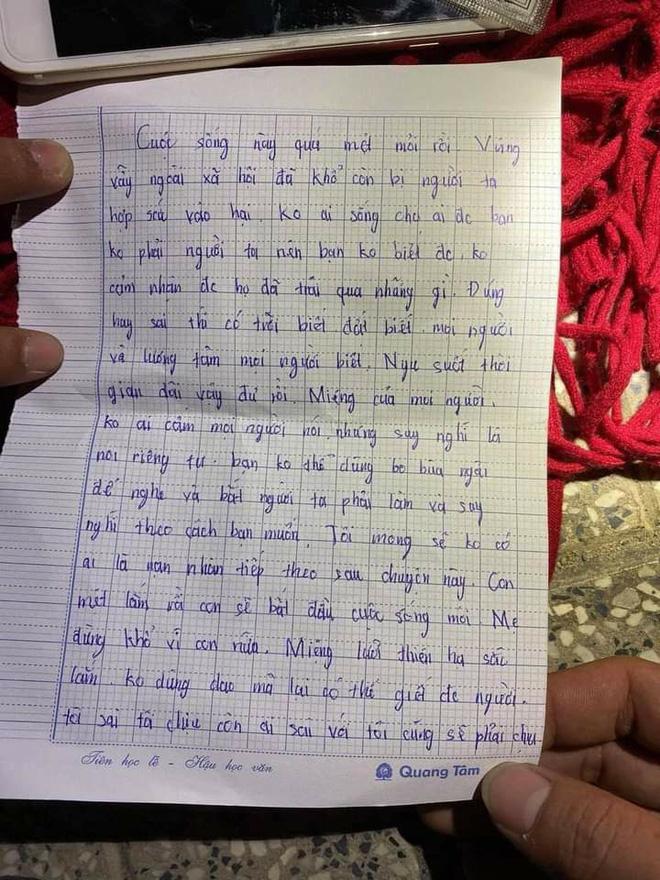 Cuộc sống này quá mệt mỏi rồi. Vùng
vẫy ngoài xã hội đã khổ còn bị người ta
hợp sứ vào hại. ko ai sống cho ai đc bạn
ko phải người ta nên bạn ko biết đc, ko
cảm nhận đc họ đã trãi qua những gì. Đúng
hay sai thì có trời biết đất biết. mọi người
và lương tâm mọi người biết. Ngu suốt thời
gian dài vậy đủ rồi. Miệng của mọi người.
ko ai cấm mọi người nói. nhưng suy nghĩ là
nơi riêng tư. bạn ko thể dùng bò bùa ngãi
để nghe và bắt người ta phải làm và suy
nghĩ theo cách bạn muốn. Tôi mong sẽ ko có
ai là nạn nhân tiếp theo sau chuyện này. Con
mệt lắm rồi con sẽ bắt đầu cuộc sống mới. Mẹ
đừng khổ vì con nữa. Miệng lưỡi thiên hạ sắc
lắm ko dùng dao mà lại có thể giết đc người.
tôi sai tôi chịu còn ai sai với tôi cũng sẽ phải chịu
Tiên học lễ - Hậu học văn
Quang Tâm